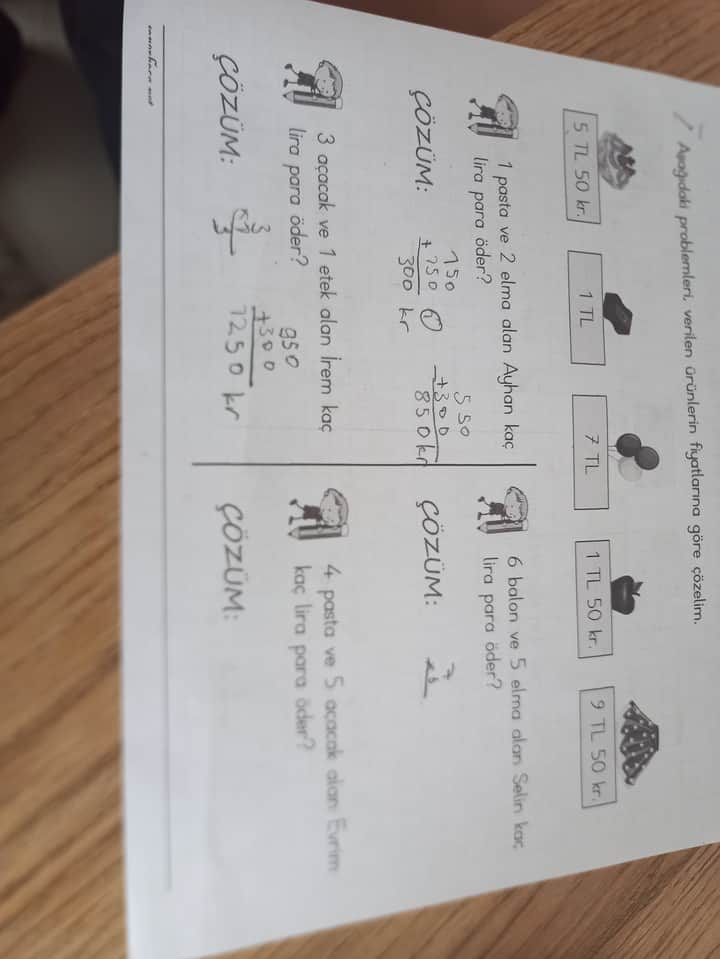 Aşağıdaki problemleri, verilen ürünlerin fiyatlarına göre çözelim.
5 TL 50 kr.
1 TL
7 TL
1 TL 50 kr.
9 TL 50 kr.
1 pasta ve 2 elma alan Ayhan kaç
lira para öder?
ÇÖZÜM:
150
+ 150
300 kr
550
+300
850 kr
6 balon ve 5 elma alan Selin kaç
lira para öder?
ÇÖZÜM:
7
3 açacak ve 1 etek alan İrem kaç
lira para öder?
ÇÖZÜM:
3
x1
3
950
+300
1250 kr
4 pasta ve 5 açacak alan Evrim
kaç lira para öder?
ÇÖZÜM: